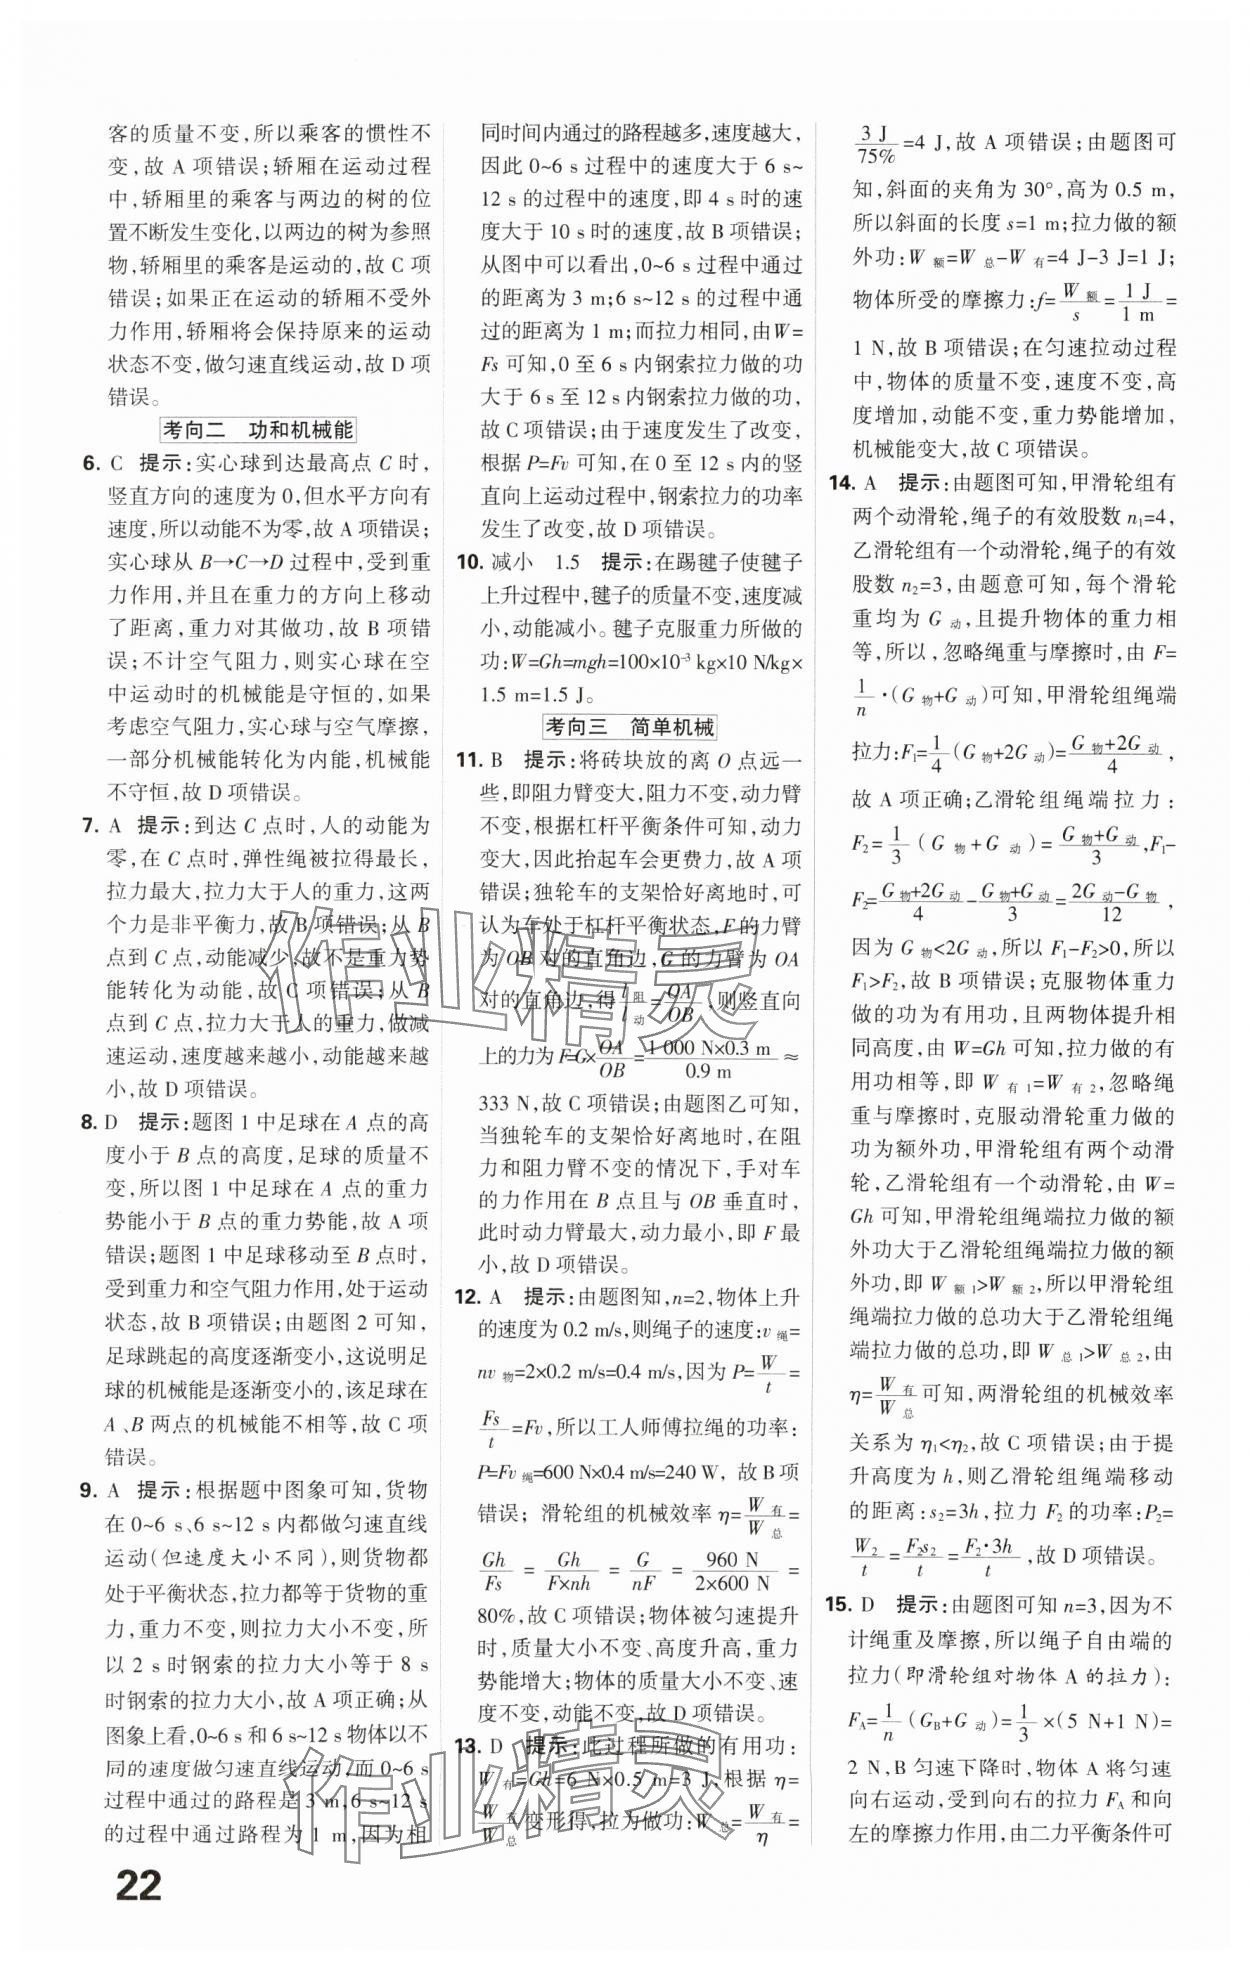 客的质量不变,所以乘客的惯性不
变,故 A 项错误;轿厢在运动过程
中,轿厢里的乘客与两边的树的位
置不断发生变化,以两边的树为参照
物,轿厢里的乘客是运动的,故 C 项
错误;如果正在运动的轿厢不受外
力作用,轿厢将会保持原来的运动
状态不变,做匀速直线运动,故 D 项
错误。
考向二 功和机械能
6. C 提示:实心球到达最高点 C 时,
竖直方向的速度为 0,但水平方向有
速度,所以动能不为零,故 A 项错误;
实心球从 B→C→D 过程中,受到重
力作用,并且在重力的方向上移动
了距离,重力对其做功,故 B 项错
误;不计空气阻力,则实心球在空
中运动时的机械能是守恒的,如果
考虑空气阻力,实心球与空气摩擦,
一部分机械能转化为内能,机械能
不守恒,故 D 项错误。
7. A 提示:到达 C 点时,人的动能为
零,在 C 点时,弹性绳被拉得最长,
拉力最大,拉力大于人的重力,这两
个力是非平衡力,故 B 项错误;从 B
点到 C 点,动能减少,故不是重力势
能转化为动能,故 C 项错误;从 B
点到 C 点,拉力大于人的重力,做减
速运动,速度越来越小,动能越来越
小,故 D 项错误。
8. D 提示:题图 1 中足球在 A 点的高
度小于 B 点的高度,足球的质量不
变,所以图 1 中足球在 A 点的重力
势能小于 B 点的重力势能,故 A 项
错误;题图 1 中足球移动至 B 点时,
受到重力和空气阻力作用,处于运动
状态,故 B 项错误;由题图 2 可知,
足球跳起的高度逐渐变小,这说明足
球的机械能是逐渐变小的,该足球在
A、B 两点的机械能不相等,故 C 项
错误。
9. A 提示:根据题中图象可知,货物
在 0~6 s、6 s~12 s 内都做匀速直线
运动(但速度大小不同),则货物都
处于平衡状态,拉力都等于货物的重
力,重力不变,则拉力大小不变,所
以 2 s 时钢索的拉力大小等于 8 s
时钢索的拉力大小,故 A 项正确;从
图象上看,0~6 s 和 6 s~12 s 物体以不
同的速度做匀速直线运动,而 0~6 s
过程中通过的路程是 3 m,6 s~12 s
的过程中通过路程为 1 m,因为相
22
同时间内通过的路程越多,速度越大,
因此 0~6 s 过程中的速度大于 6 s~
12 s 的过程中的速度,即 4 s 时的速
度大于 10 s 时的速度,故 B 项错误;
从图中可以看出,0~6 s 过程中通过
的距离为 3 m;6 s~12 s 的过程中通
过的距离为 1 m;而拉力相同,由 W=
Fs 可知,0 至 6 s 内钢索拉力做的功
大于 6 s 至 12 s 内钢索拉力做的功,
故 C 项错误;由于速度发生了改变,
根据 P=Fv 可知,在 0 至 12 s 内的竖
直向上运动过程中,钢索拉力的功率
发生了改变,故 D 项错误。
10. 减小 1.5 提示:在踢毽子使毽子
上升过程中,毽子的质量不变,速度减
小,动能减小。毽子克服重力所做的
功:W=Gh=mgh=100×10⁻³ kg×10 N/kg×
1.5 m=1.5 J。
考向三 简单机械
11. B 提示:将砖块放的离 O 点远一
些,即阻力臂变大,阻力不变,动力臂
不变,根据杠杆平衡条件可知,动力
变大,因此抬起车会更费力,故 A 项
错误;独轮车的支架恰好离地时,可
认为车处于杠杆平衡状态,F 的力臂
为 OB 对的直角边,G 的力臂为 OA
对的直角边,得 l阻/l动=OA/OB,则竖直向
上的力为 F=G×OA/OB=1 000 N×0.3 m/0.9 m≈
333 N,故 C 项错误;由题图乙可知,
当独轮车的支架恰好离地时,在阻
力和阻力臂不变的情况下,手对车
的力作用在 B 点且与 OB 垂直时,
此时动力臂最大,动力最小,即 F 最
小,故 D 项错误。
12. A 提示:由题图知,n=2,物体上升
的速度为 0.2 m/s,则绳子的速度:v绳=
nv物=2×0.2 m/s=0.4 m/s,因为 P=W/t=
Fs/t=Fv,所以工人师傅拉绳的功率:
P=Fv绳=600 N×0.4 m/s=240 W, 故 B 项
错误; 滑轮组的机械效率 η=W有/W总=
Gh/Fs = Gh/F×nh = G/nF = 960 N/2×600 N =
80%,故 C 项错误;物体被匀速提升
时,质量大小不变、高度升高,重力
势能增大;物体的质量大小不变、速
度不变,动能不变,故 D 项错误。
13. D 提示:此过程所做的有用功:
W有=Gh=6 N×0.5 m=3 J,根据 η=
W有/W总变形得,拉力做功:W总=W有/η=
3 J/75%=4 J,故 A 项错误;由题图可
知,斜面的夹角为 30°,高为 0.5 m,
所以斜面的长度 s=1 m;拉力做的额
外功:W额=W总-W有=4 J-3 J=1 J;
物体所受的摩擦力:f=W额/s=1 J/1 m=
1 N,故 B 项错误;在匀速拉动过程
中,物体的质量不变,速度不变,高
度增加,动能不变,重力势能增加,
机械能变大,故 C 项错误。
14. A 提示:由题图可知,甲滑轮组有
两个动滑轮,绳子的有效股数 n₁=4,
乙滑轮组有一个动滑轮,绳子的有效
股数 n₂=3,由题意可知,每个滑轮
重均为 G动,且提升物体的重力相
等,所以,忽略绳重与摩擦时,由 F=
1/n·(G物+G动)可知,甲滑轮组绳端
拉力:F₁=1/4(G物+2G动)=G物+2G动/4,
故 A 项正确;乙滑轮组绳端拉力:
F₂=1/3(G物+G动)=G物+G动/3,F₁-
F₂=G物+2G动/4-G物+G动/3=2G动-G物/12,
因为 G物<2G动,所以 F₁-F₂>0,所以
F₁>F₂,故 B 项错误;克服物体重力
做的功为有用功,且两物体提升相
同高度,由 W=Gh 可知,拉力做的有
用功相等,即 W有1=W有2,忽略绳
重与摩擦时,克服动滑轮重力做的
功为额外功,甲滑轮组有两个动滑
轮,乙滑轮组有一个动滑轮,由 W=
Gh 可知,甲滑轮组绳端拉力做的额
外功大于乙滑轮组绳端拉力做的额
外功,即 W额1>W额2,所以甲滑轮组
绳端拉力做的总功大于乙滑轮组绳
端拉力做的总功,即 W总1>W总2,由
η=W有/W总可知,两滑轮组的机械效率
关系为 η₁<η₂,故 C 项错误;由于提
升高度为 h,则乙滑轮组绳端移动
的距离:s₂=3h,拉力 F₂ 的功率:P₂=
W₂/t=F₂s₂/t=F₂·3h/t,故 D 项错误。
15. D 提示:由题图可知 n=3,因为不
计绳重及摩擦,所以绳子自由端的
拉力(即滑轮组对物体 A 的拉力):
F_A=1/n(G_B+G动)=1/3×(5 N+1 N)=
2 N,B 匀速下降时,物体 A 将匀速
向右运动,受到向右的拉力 F_A 和向
左的摩擦力作用,由二力平衡条件可
作业精灵
作业精灵